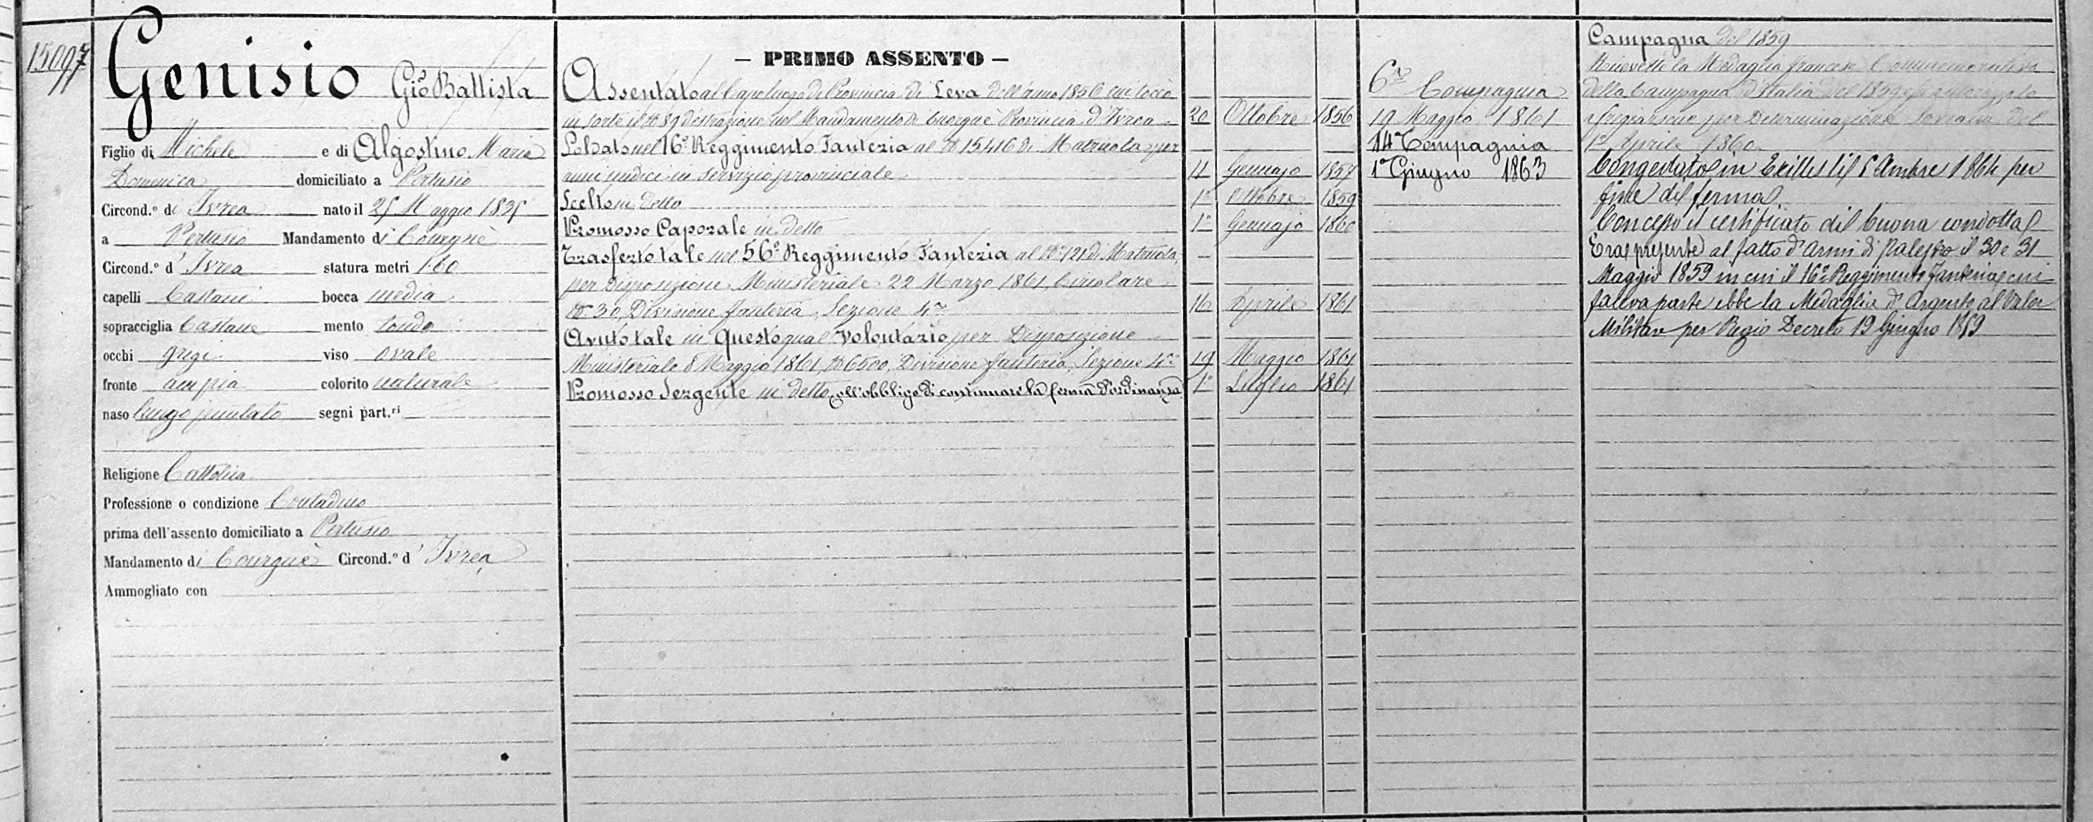 15097
Genisio Gio Battista
Figlio di Michele e di Algostino Maria
Domenica domiciliato a Pertusio
Circond.º di Ivrea nato il 25 Maggio 1835
a Pertusio Mandamento di Courgnè
Circond.º d' Ivrea statura metri 1.60
capelli Castani bocca media
sopracciglia Castane mento tondo
occhi grigi viso ovale
fronte ampia colorito naturale
naso lungo segni part.ri
Religione Cattolica
Professione o condizione Contadino
prima dell'assento domiciliato a Pertusio
Mandamento di Courgnè Circond.º d' Ivrea
Ammogliato con
— PRIMO ASSENTO —
Assentato al Capoluogo di Provincia di Leva dell'anno 1856 cui toccò
in sorte il Nº 89 d'estrazione nel Mandamento di Cuorgnè Provincia d'Ivrea 20 Ottobre 1856
nel 16º Reggimento Fanteria al Nº 15416 di Matricola per
anni undici in servizio provinciale 11 Gennajo
Scelto in detto 1º Ottobre 1859
Promosso Caporale in detto 1º Gennajo 1860
Trasferto tale nel 56º Reggimento Fanteria al Nº 121 di Matricola
per disposizione Ministeriale 22 Marzo 1861 Circolare
Nº 30, Divisione fanteria, Sezione 4ª 16 Aprile 1861
Avuto tale in Questo qual Volontario per Disposizione
Ministeriale 8 Maggio 1861, Nº 6500, Divisione fanteria, Sezione 4ª 19 Maggio 1861
Promosso Sergente in detto coll'obbligo di continuare la ferma d'ordinanza 1º Luglio 1861
6ª Compagnia
19 Maggio 1861
14ª Compagnia
1º Giugno 1863
Campagna del 1859
Ricevette la Medaglia francese Commemorativa
della Campagna d'Italia del 1859 e autorizzato
a fregiarsene per Determinazione Sovrana del
1º Aprile 1860
Congedato in Exilles li 1864 per
fine di ferma
Concesso il certificato di buona condotta
Era presente al fatto d'armi di Palestro il 30 e 31
Maggio 1859 in cui il 16º Reggimento Fanteria, cui
faceva parte ebbe la Medaglia d'Argento al Valor
Militare per Regio Decreto 19 Giugno 1859